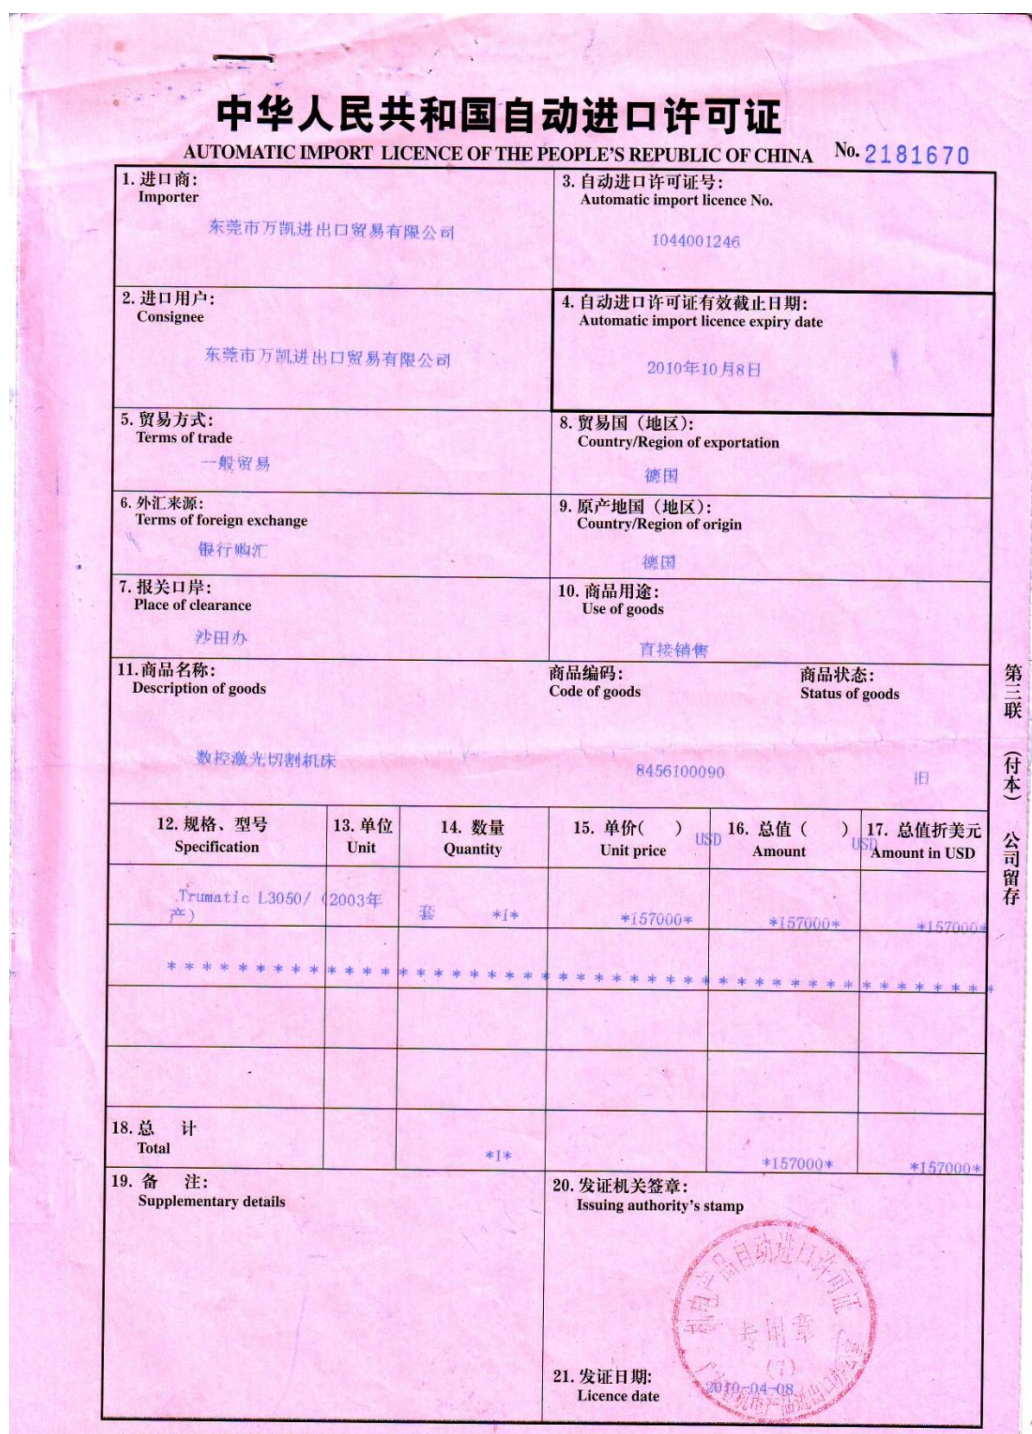 中华人民共和国自动进口许可证
AUTOMATIC IMPORT LICENCE OF THE PEOPLE'S REPUBLIC OF CHINA No. 2181670
1. 进口商:
Importer
东莞市万凯进出口贸易有限公司
3. 自动进口许可证号:
Automatic import licence No.
1044001246
2. 进口用户:
Consignee
东莞市万凯进出口贸易有限公司
4. 自动进口许可证有效截止日期:
Automatic import licence expiry date
2010年10月8日
5. 贸易方式:
Terms of trade
一般贸易
8. 贸易国（地区）:
Country/Region of exportation
德国
6. 外汇来源:
Terms of foreign exchange
银行购汇
9. 原产地国（地区）:
Country/Region of origin
德国
7. 报关口岸:
Place of clearance
沙田办
10. 商品用途:
Use of goods
直接销售
11.商品名称:
Description of goods
商品编码:
Code of goods
商品状态:
Status of goods
数控激光切割机床
8456100090
旧
12. 规格、型号
Specification
13. 单位
Unit
14. 数量
Quantity
15. 单价( ) USD
Unit price
16. 总值 ( ) USD
Amount
17. 总值折美元
Amount in USD
Trumatic L3050/（2003年
产）
套
*1*
*157000*
*157000*
*157000*
* * * * * * * * * * * * * * * * * * * * * * * * * * * * * * * * * * * * * * * * * * * * * * *
18. 总 计
Total
*1*
*157000*
*157000*
19. 备 注:
Supplementary details
20. 发证机关签章:
Issuing authority's stamp
机电产品自动进口许可证
专用章
(7)
21. 发证日期:
Licence date
2010-04-08
第三联 （付本） 公司留存